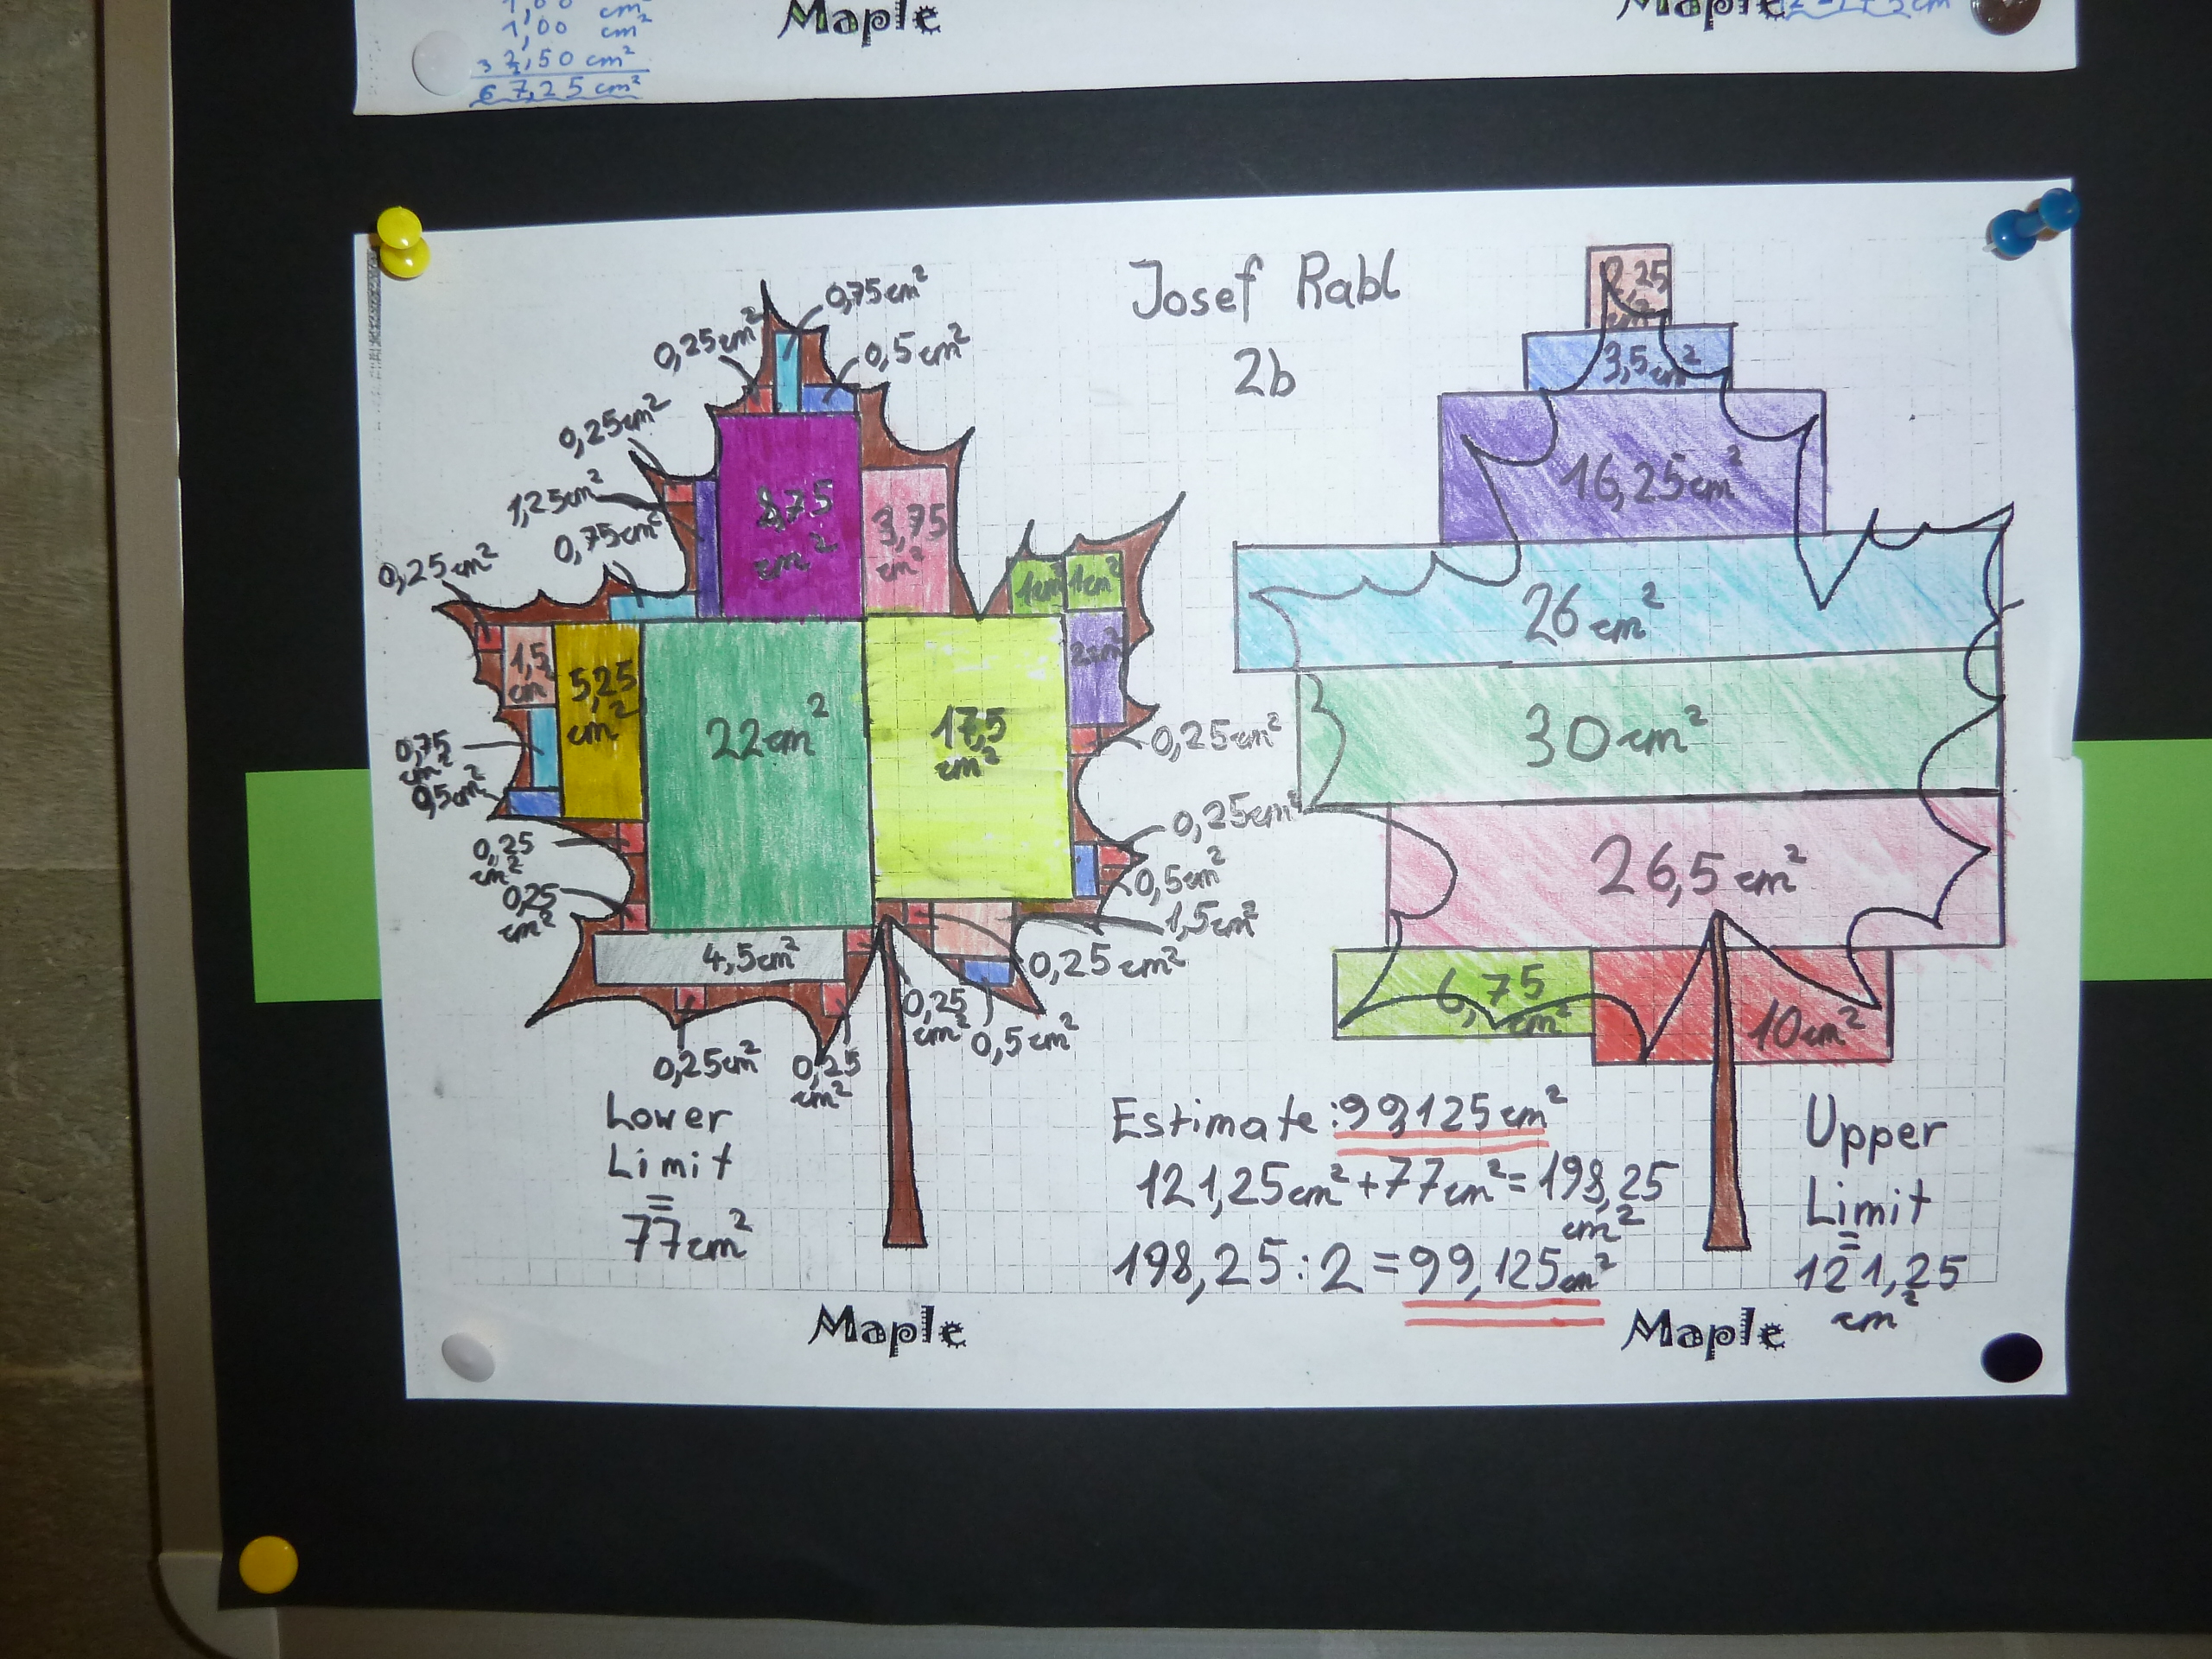 1,00 cm²
1,00 cm²
32,50 cm²
67,25 cm²
Maple
Maple
Josef Rabl
2b
0,75cm²
0,25cm²
0,5cm²
0,25cm²
1,25cm²
0,75cm²
0,25cm²
8,75
cm²
3,75
cm²
1cm²
1cm²
1,5
cm²
5,25
cm²
22cm²
17,5
cm²
2cm²
0,75
cm²
0,5cm²
0,25
cm²
0,25
cm²
4,5cm²
0,25cm²
0,25cm²
0,5cm²
1,5cm²
0,25cm²
0,25
cm²
0,5cm²
0,25cm²
0,25
cm²
Lower
Limit
=
77cm²
2,25
cm²
3,5cm²
16,25cm²
26cm²
30cm²
26,5cm²
6,75
cm²
10cm²
Estimate:99,125cm²
121,25cm²+77cm²=198,25
cm²
198,25:2=99,125cm²
Upper
Limit
=
121,25
cm²
Maple
Maple